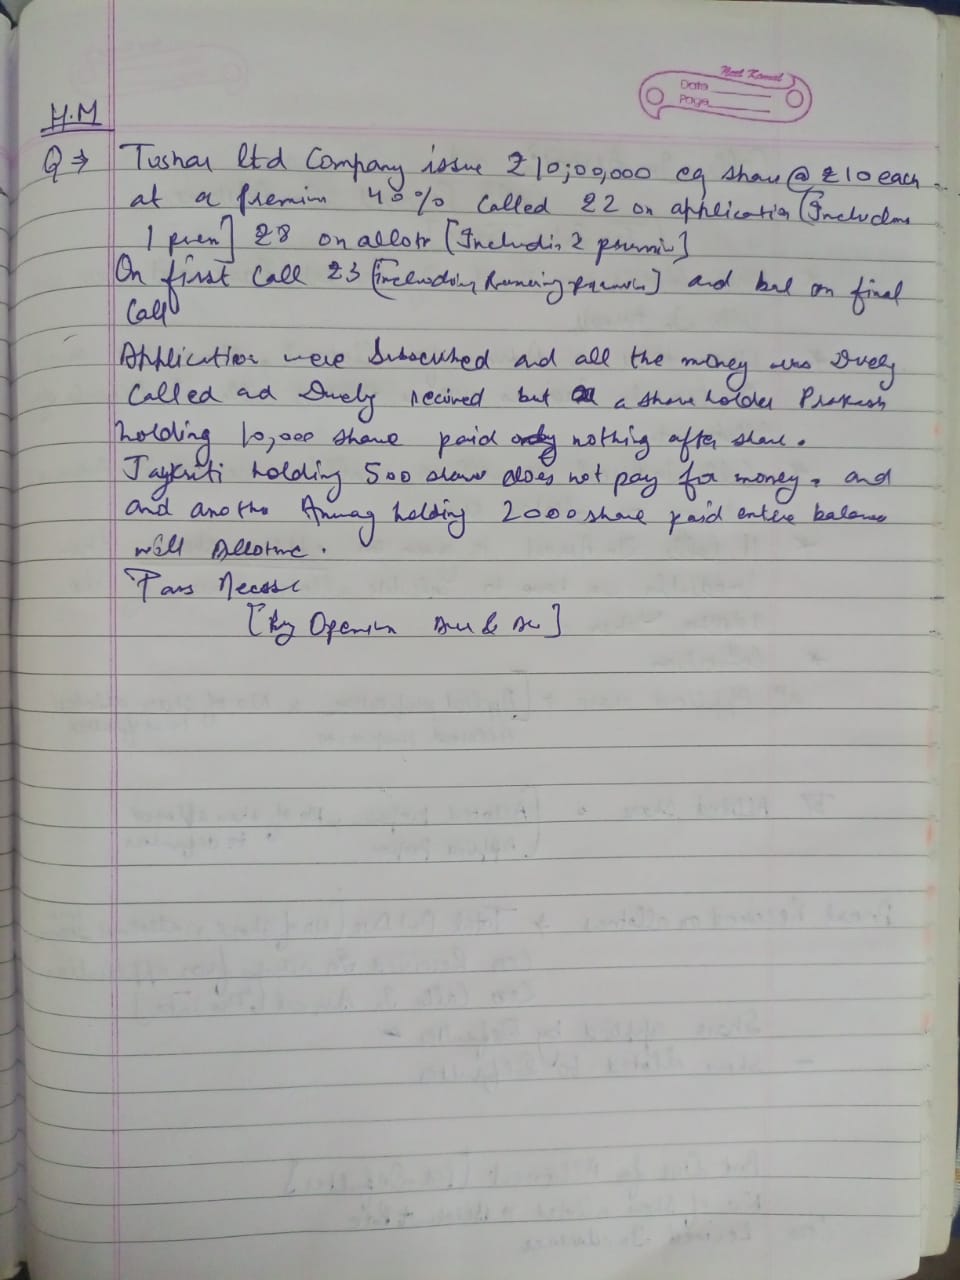 Neel Kamal
Date
Page
H.M
Q ⇒ Tushar ltd Company issue ₹10,00,000 eq share @ ₹10 each
at a premium 40% called ₹2 on application (Includin
1 prem] ₹8 on allotr [Includin 2 premiu]
On first Call ₹3 [including Remening premiu] and bal on final
Call
Application were Subscribed and all the money was Duely
Called ad Duely recived but a share holder Prakash
holding 10,000 share paid nothing after share.
Jaykriti holding 500 share does not pay for money. and
and anothe Anurag holding 2000 share paid entire balance
with Allotme.
Pass Necsse
[By Openin &]